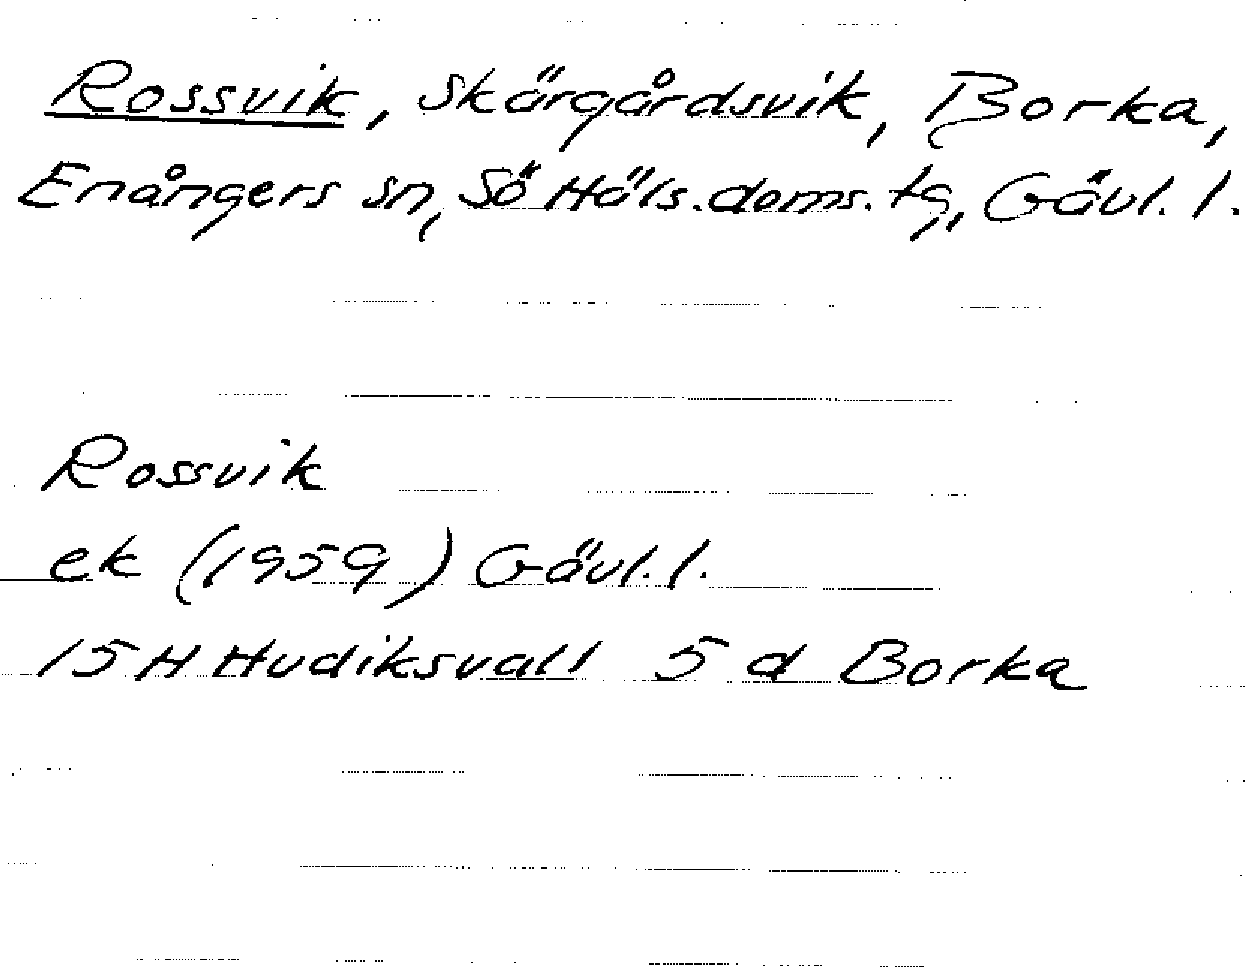 Rossvik, Skärgårdsvik, Borka,
Enångers sn, Sö Häls. doms. tg, Gävl. l.
Rossvik
ek (1959) Gävl. l.
15 H Hudiksvall 5 d Borka